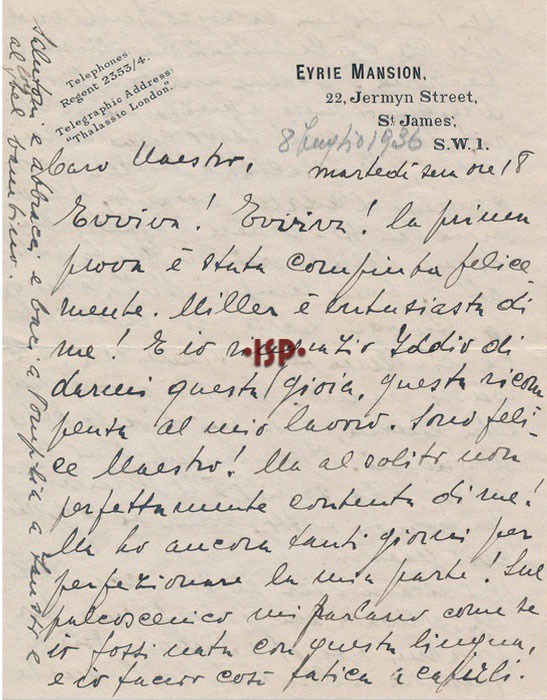 Telephones,
Regent 2353/4.
Telegraphic Address:
"Thalassic London."
EYRIE MANSION,
22, Jermyn Street,
St James',
S.W.1.
8 Luglio 1936
Caro Maestro,
martedì sera ore 18
Evviva! Evviva! la prima
prova è stata compiuta felice
mente. Miller è entusiasta di
me! E io ringrazio Iddio di
darmi questa gioia, questa ricom
pensa al mio lavoro. Sono feli-
ce Maestro! Ma al solito non
perfettamente contenta di me!
Ma ho ancora tanti giorni per
perfezionare la mia parte! Sul
palcoscenico mi parlano come se
io fossi nata con questa lingua,
e io faccio così fatica a capirli.
Salutoni e abbracci e baci a Pompilia a Fausto e
al bel bambino.
·ISP·